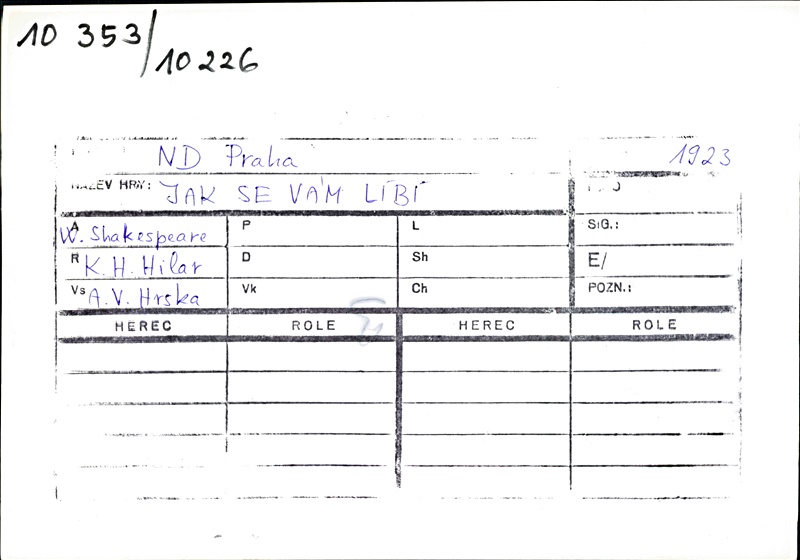 10 353/10 226
ND Praha 1923
NÁZEV HRY: JAK SE VÁM LÍBÍ
A W. Shakespeare P L SIG.:
R K. H. Hilar D Sh E/
Vs A. V. Hrska Vk Ch POZN.:
HEREC ROLE HEREC ROLE